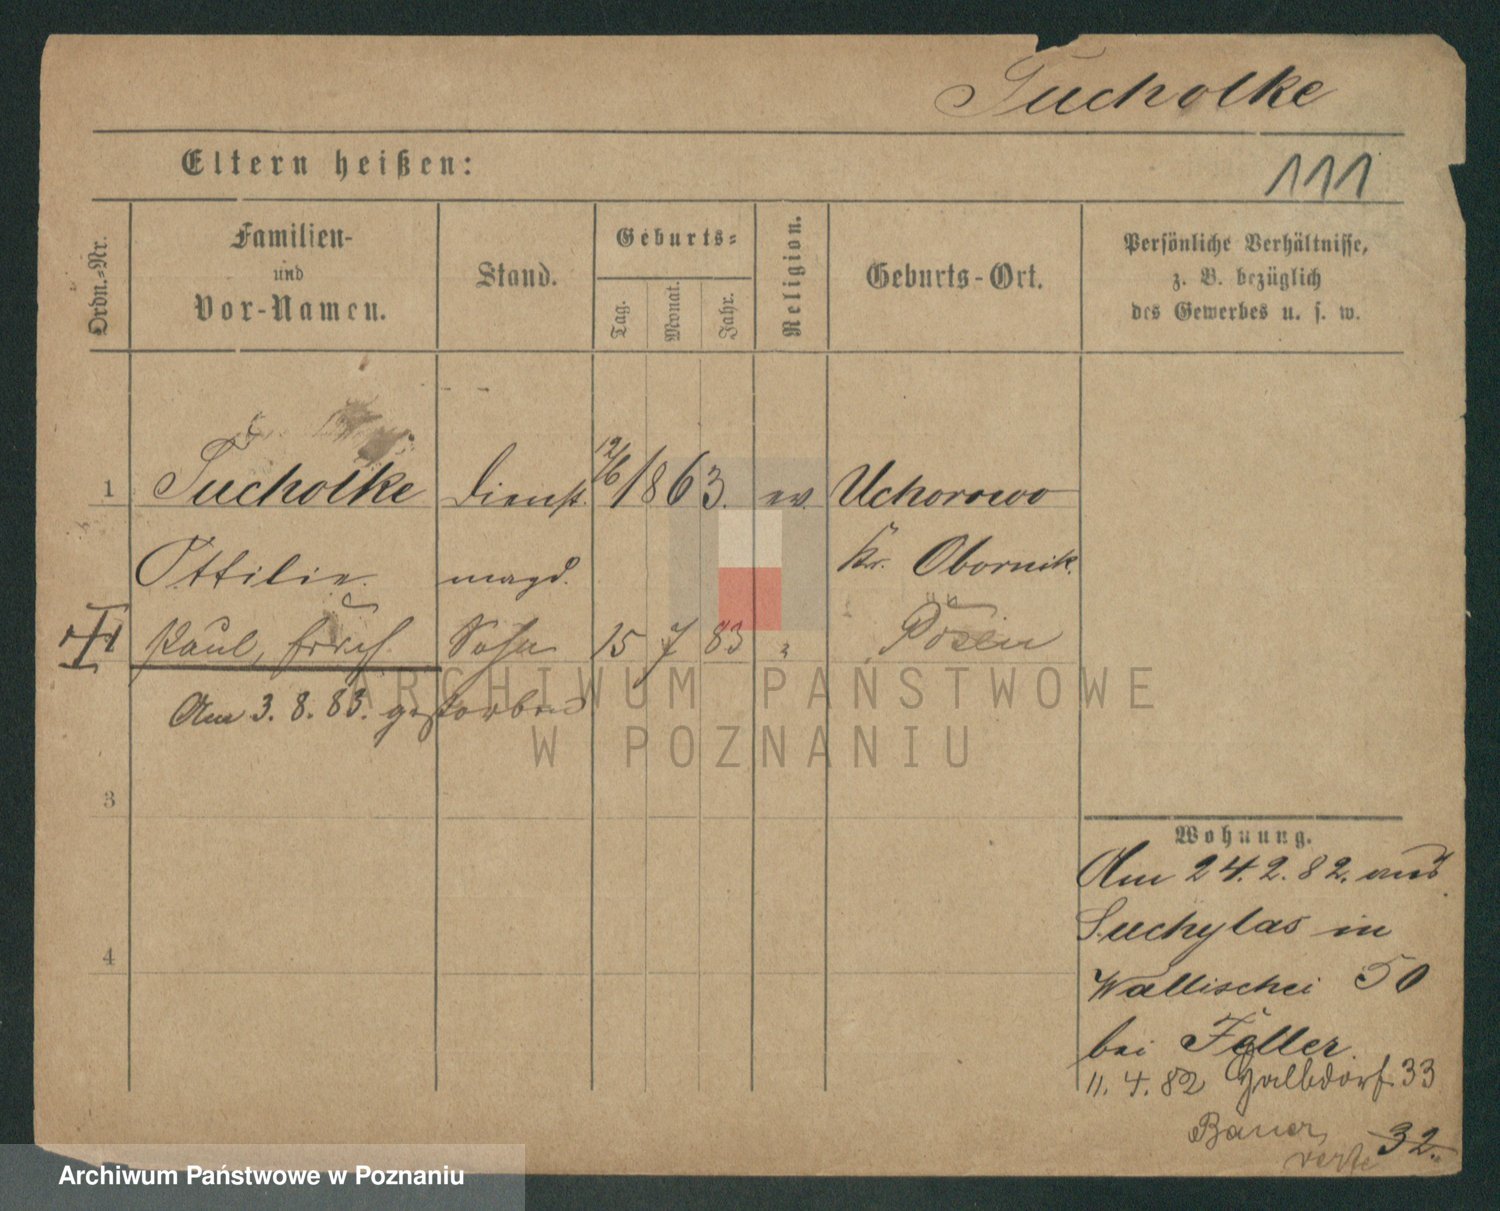 Tucholke
Eltern heißen:
111
Ordn.-Nr.
Familien-
und
Vor-Namen.
Stand.
Geburts-
Tag.
Monat.
Jahr.
Religion.
Geburts-Ort.
Persönliche Verhältnisse,
z. B. bezüglich
des Gewerbes u. s. w.
1 Tucholke Dienst. 12/6 1863. ev. Uchorowo
Ottilie. magd. Kr. Obornik.
Paul, Sohn 15 7 83 " Posen
Am 3. 8. 83. gestorben
3
4
Wohnung.
Am 24. 2. 82. aus
Suchylas in
Wallischei 50
bei Feller.
11. 4. 82 Halbdorf. 33
Bauer
verte 32.
ARCHIWUM PAŃSTWOWE
W POZNANIU
Archiwum Państwowe w Poznaniu